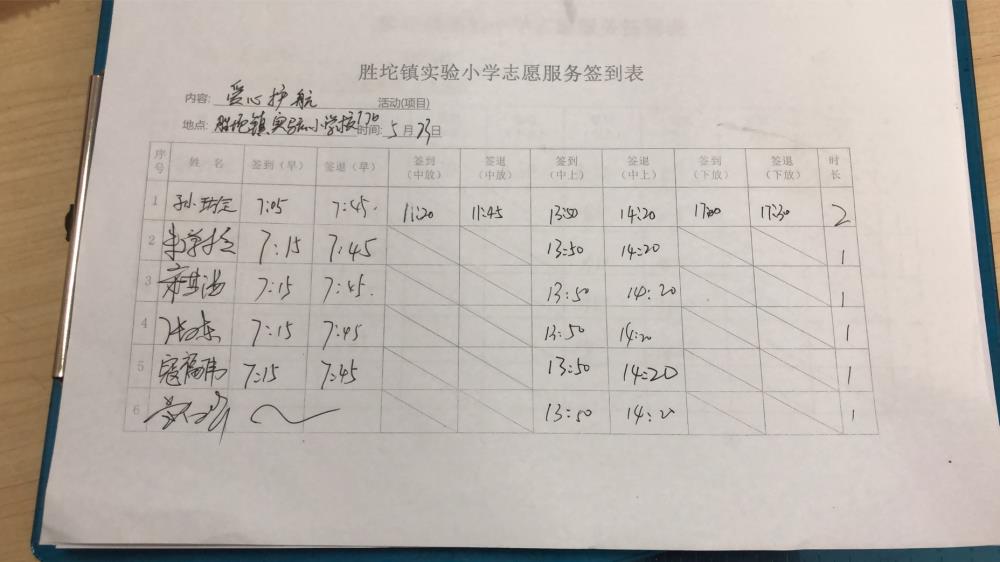 胜坨镇实验小学志愿服务签到表
内容: 爱心护航 活动(项目)
地点: 胜坨镇实验小学校门口 时间: 5月23日
序号 姓名 签到（早） 签退（早） 签到（中放） 签退（中放） 签到（中上） 签退（中上） 签到（下放） 签退（下放） 时长
1 7:05 7:45. 11:20 11:45 13:50 14:20 17:00 17:30 2
2 7:15 7:45 13:50 14:20 1
3 7:15 7:45. 13:50 14:20 1
4 7:15 7:45 13:50 14:20 1
5 寇福伟 7:15 7:45 13:50 14:20 1
6 13:50 14:20 1